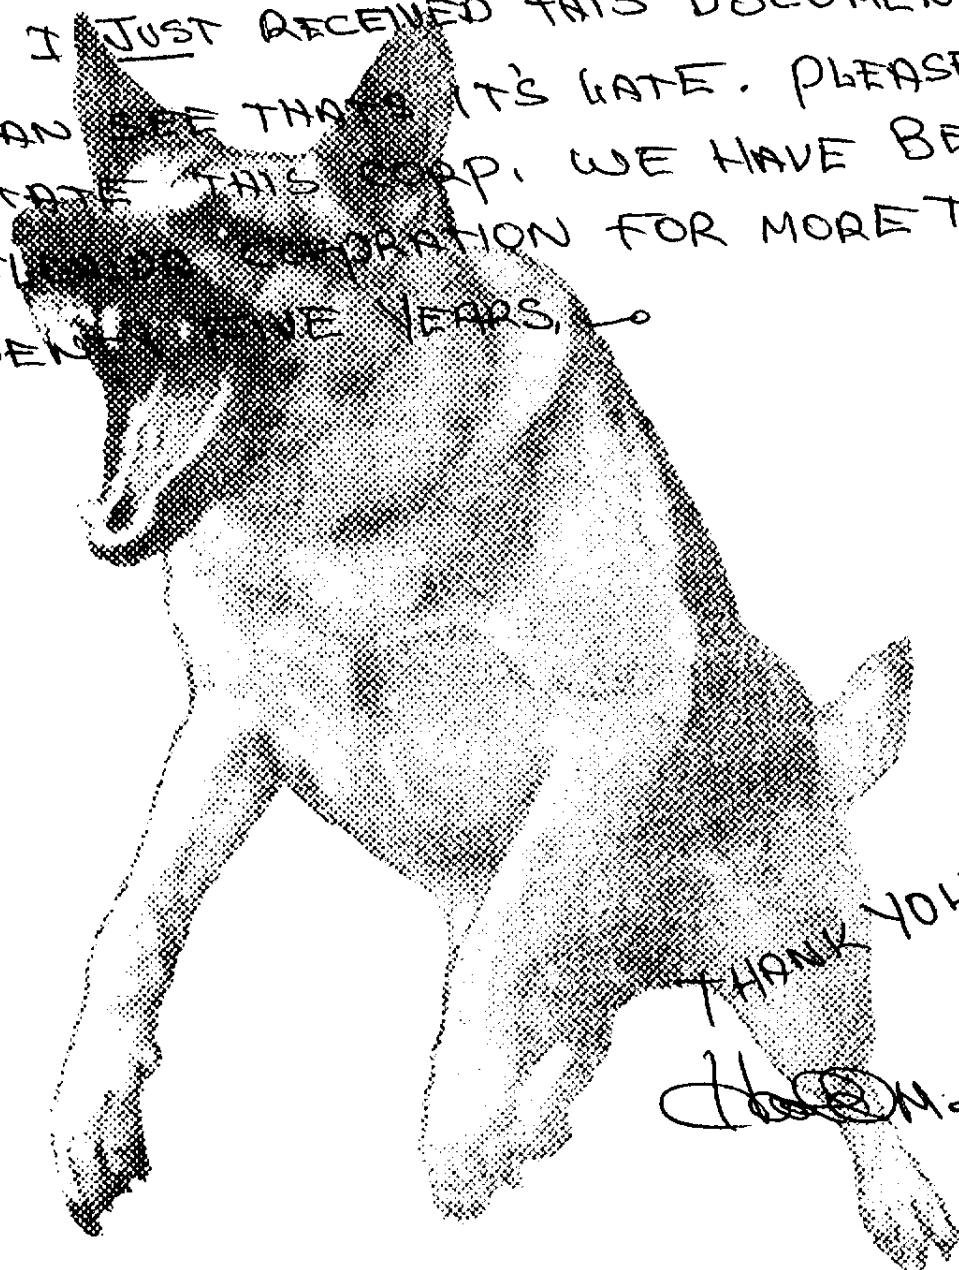 I JUST RECEIVED THIS DOCUMEN
AN SEE THAT IT'S LATE. PLEASE
TATE THIS CORP. WE HAVE BE
CORPORATION FOR MORE T
FIVE YEARS.
THANK YOU